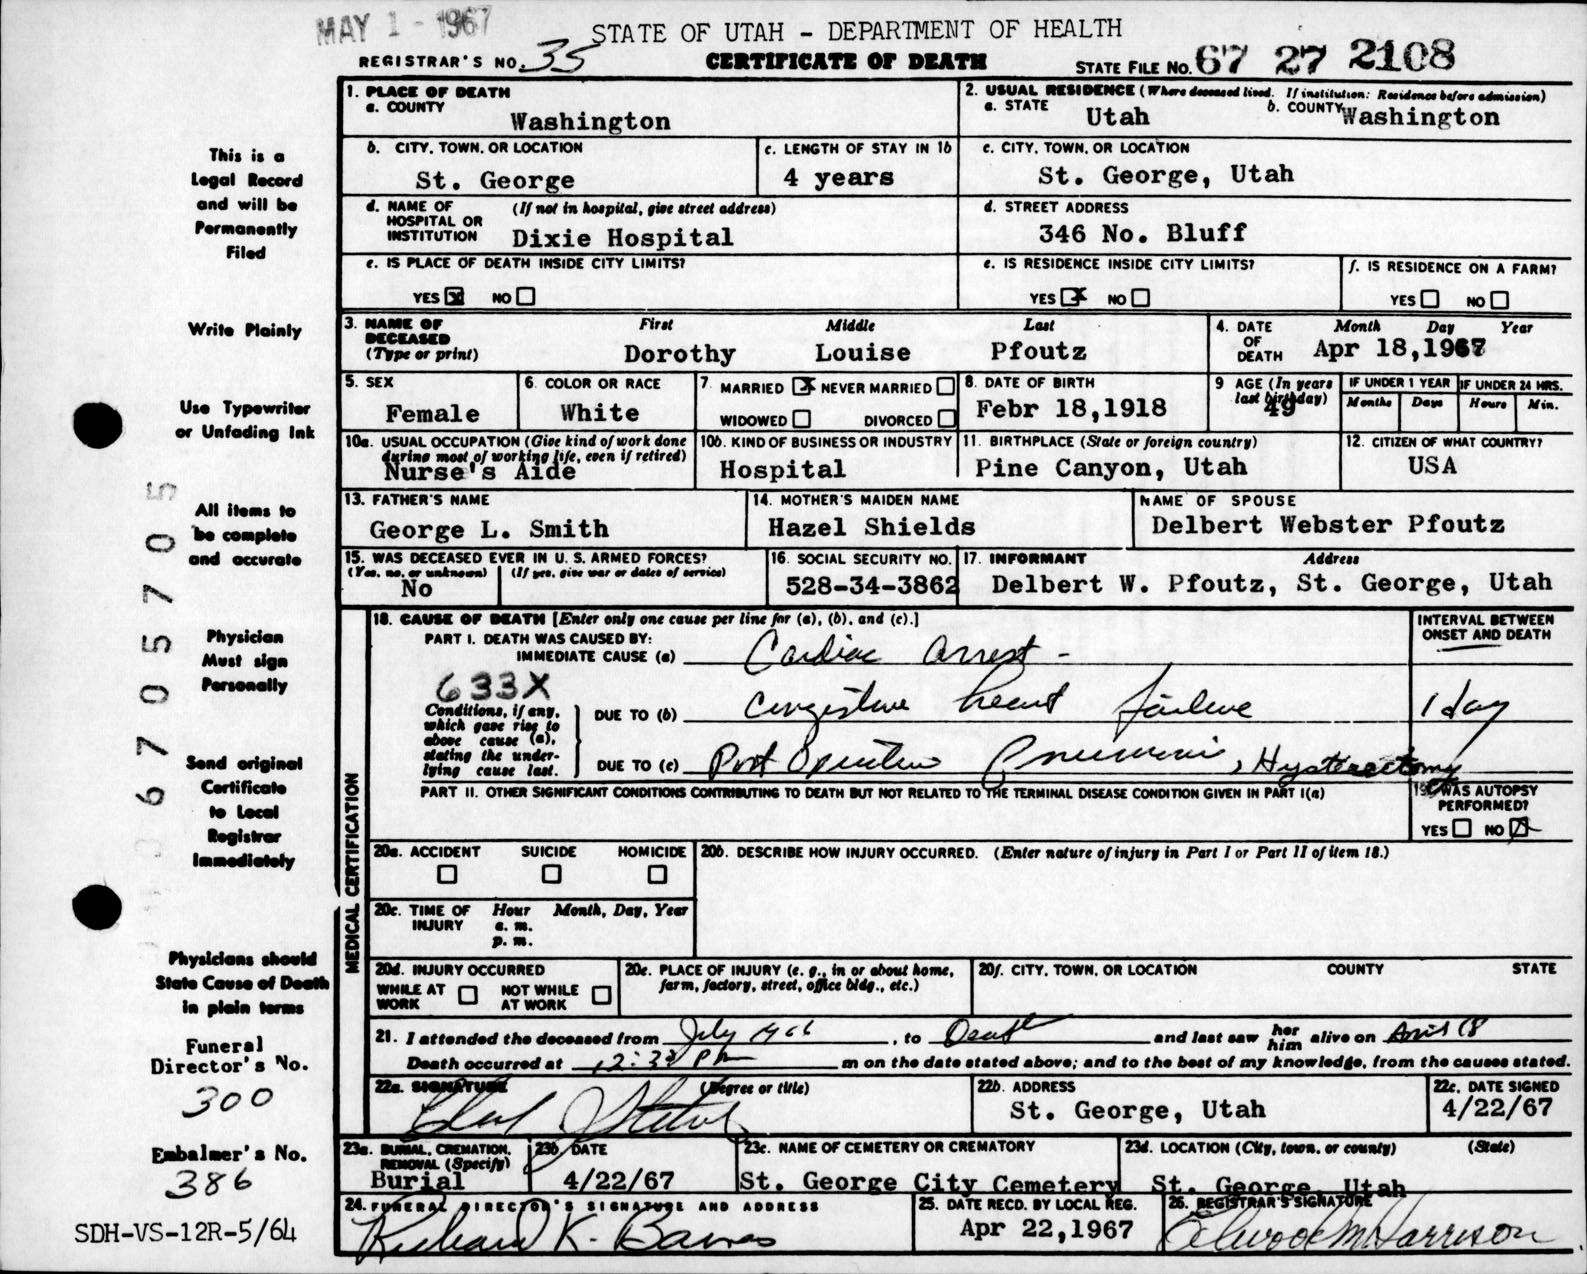 MAY 1 - 1967
STATE OF UTAH - DEPARTMENT OF HEALTH
REGISTRAR'S NO. 35
CERTIFICATE OF DEATH
STATE FILE NO. 67 27 2108
This is a
Legal Record
and will be
Permanently
Filed
Write Plainly
Use Typewriter
or Unfading Ink
All items to
be complete
and accurate
Physician
Must sign
Personally
Send original
Certificate
to Local
Registrar
Immediately
Physicians should
State Cause of Death
in plain terms
Funeral
Director's No.
300
Embalmer's No.
386
SDH-VS-12R-5/64
6705705
1. PLACE OF DEATH
a. COUNTY
Washington
2. USUAL RESIDENCE (Where deceased lived. If institution: Residence before admission)
a. STATE Utah b. COUNTY Washington
b. CITY, TOWN, OR LOCATION
St. George
c. LENGTH OF STAY IN 1b
4 years
c. CITY, TOWN, OR LOCATION
St. George, Utah
d. NAME OF HOSPITAL OR INSTITUTION (If not in hospital, give street address)
Dixie Hospital
d. STREET ADDRESS
346 No. Bluff
e. IS PLACE OF DEATH INSIDE CITY LIMITS?
YES X NO
e. IS RESIDENCE INSIDE CITY LIMITS?
YES X NO
f. IS RESIDENCE ON A FARM?
YES NO
3. NAME OF DECEASED (Type or print)
First Middle Last
Dorothy Louise Pfoutz
4. DATE OF DEATH Month Day Year
Apr 18,1967
5. SEX
Female
6. COLOR OR RACE
White
7. MARRIED X NEVER MARRIED
WIDOWED DIVORCED
8. DATE OF BIRTH
Febr 18,1918
9 AGE (In years last birthday)
49
IF UNDER 1 YEAR IF UNDER 24 HRS.
Months Days Hours Min.
10a. USUAL OCCUPATION (Give kind of work done during most of working life, even if retired)
Nurse's Aide
10b. KIND OF BUSINESS OR INDUSTRY
Hospital
11. BIRTHPLACE (State or foreign country)
Pine Canyon, Utah
12. CITIZEN OF WHAT COUNTRY?
USA
13. FATHER'S NAME
George L. Smith
14. MOTHER'S MAIDEN NAME
Hazel Shields
NAME OF SPOUSE
Delbert Webster Pfoutz
15. WAS DECEASED EVER IN U. S. ARMED FORCES?
(Yes, no, or unknown) (If yes, give war or dates of service)
No
16. SOCIAL SECURITY NO.
528-34-3862
17. INFORMANT Address
Delbert W. Pfoutz, St. George, Utah
MEDICAL CERTIFICATION
18. CAUSE OF DEATH [Enter only one cause per line for (a), (b), and (c).]
INTERVAL BETWEEN ONSET AND DEATH
PART I. DEATH WAS CAUSED BY:
IMMEDIATE CAUSE (a) Cardiac arrest -
633X
Conditions, if any, which gave rise to above cause (a), stating the underlying cause last.
DUE TO (b) Congestive heart failure 1 day
DUE TO (c) Post Operative Pneumonia, Hysterectomy
PART II. OTHER SIGNIFICANT CONDITIONS CONTRIBUTING TO DEATH BUT NOT RELATED TO THE TERMINAL DISEASE CONDITION GIVEN IN PART I(a)
19. WAS AUTOPSY PERFORMED?
YES NO X
20a. ACCIDENT SUICIDE HOMICIDE
20b. DESCRIBE HOW INJURY OCCURRED. (Enter nature of injury in Part I or Part II of item 18.)
20c. TIME OF INJURY Hour Month, Day, Year
a. m.
p. m.
20d. INJURY OCCURRED
WHILE AT WORK NOT WHILE AT WORK
20e. PLACE OF INJURY (e. g., in or about home, farm, factory, street, office bldg., etc.)
20f. CITY, TOWN, OR LOCATION COUNTY STATE
21. I attended the deceased from July 1966, to Death and last saw her him alive on April 18
Death occurred at 12:30 Pm m on the date stated above; and to the best of my knowledge, from the causes stated.
22a. SIGNATURE (Degree or title)
22b. ADDRESS
St. George, Utah
22c. DATE SIGNED
4/22/67
23a. BURIAL, CREMATION, REMOVAL (Specify)
Burial
23b. DATE
4/22/67
23c. NAME OF CEMETERY OR CREMATORY
St. George City Cemetery
23d. LOCATION (City, town, or county) (State)
St. George, Utah
24. FUNERAL DIRECTOR'S SIGNATURE AND ADDRESS
Richard K. Barnes
25. DATE RECD. BY LOCAL REG.
Apr 22,1967
26. REGISTRAR'S SIGNATURE
Elwood M Harrison